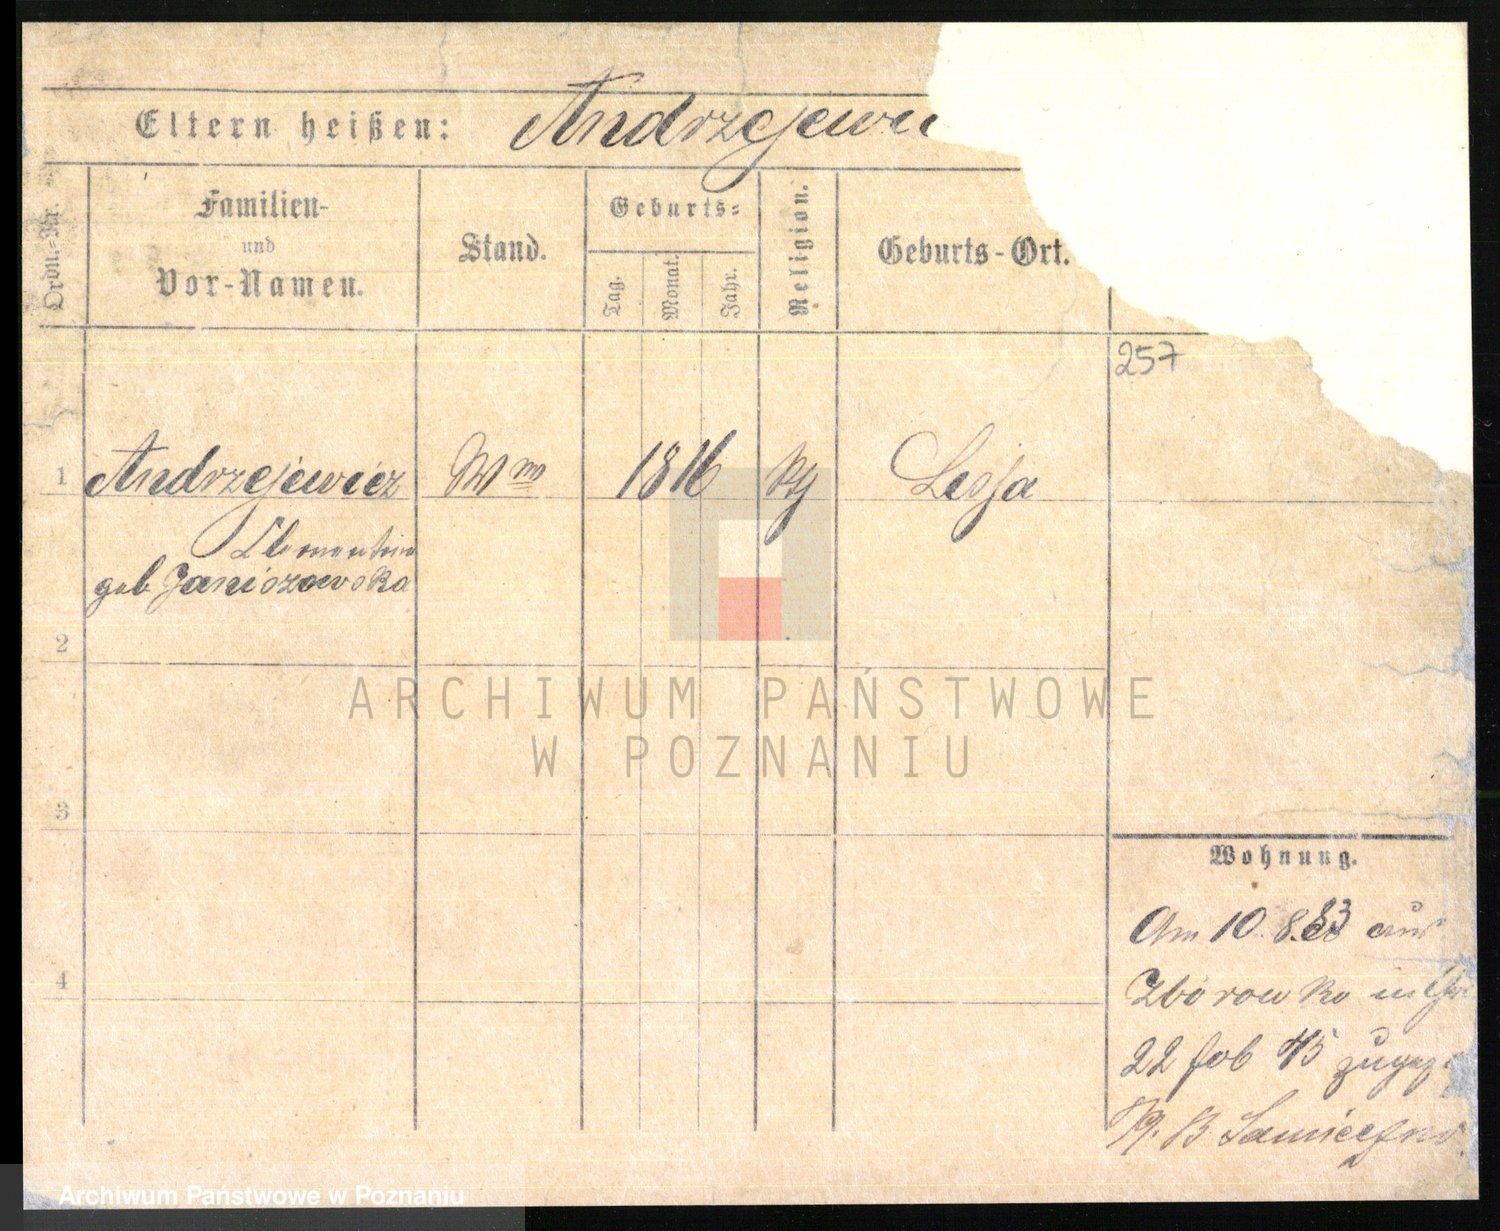 Eltern heißen: Andrzejewic
Ordn.-Nr.
Familien-
und
Vor-Namen.
Stand.
Geburts-
Tag.
Monat.
Jahr.
Religion.
Geburts-Ort.
257
1 Andrzejewicz Wwe 1816 Lesja
Clementine
geb Janiszowska
2
3
4
Wohnung.
Am 10.8.83 aus
Zborowko in
22 feb 45 zugez
ARCHIWUM PAŃSTWOWE
W POZNANIU
Archiwum Państwowe w Poznaniu